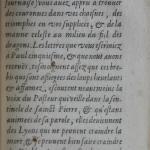 journage) vous avez appris a trouver
des couronnes dans vos chaisnes, des
triomphes en vos supplices, & de la
manne celeste au milieu du fiel des
dragons. Les lettres que vous escriviez
a Paul cinquiesme, & que nous avons
tesmoignent assez que ces bre-
bis qui sont assiegees des loups hurlants
& affamez, escoutent neantmoins la
voix du Pasteur qui veille dans la sen-
tinelle de sainct Pierre, & qu'estans
animees de sa parole, elles deviennent
des Lyons qui ne peuvent craindre la
mort, & peuvent bien faire craindre